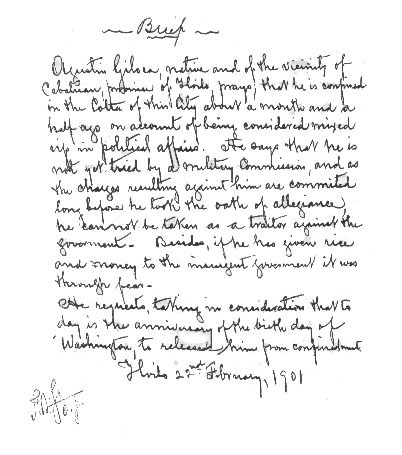 Brief
Agustin Giloca, native and of the vicinity of
Cabatuan, province of Iloilo, prays, that he is confined
in the Cotta of this City about a month and a
half ago on account of being considered mixed
up in political affairs. He says that he is
not yet tried by a military Commission, and as
the charges resulting against him are commited
long before he took the oath of allegiance,
he cannot be taken as a traitor against the
goverment- Besides, if he has given rice
and money to the insurgent goverment it was
through fear-
He requests, taking in consideration that to
day is the anniversary of the birth day of
Washington, to released, him from confinement.
Iloilo 22nd February, 1901